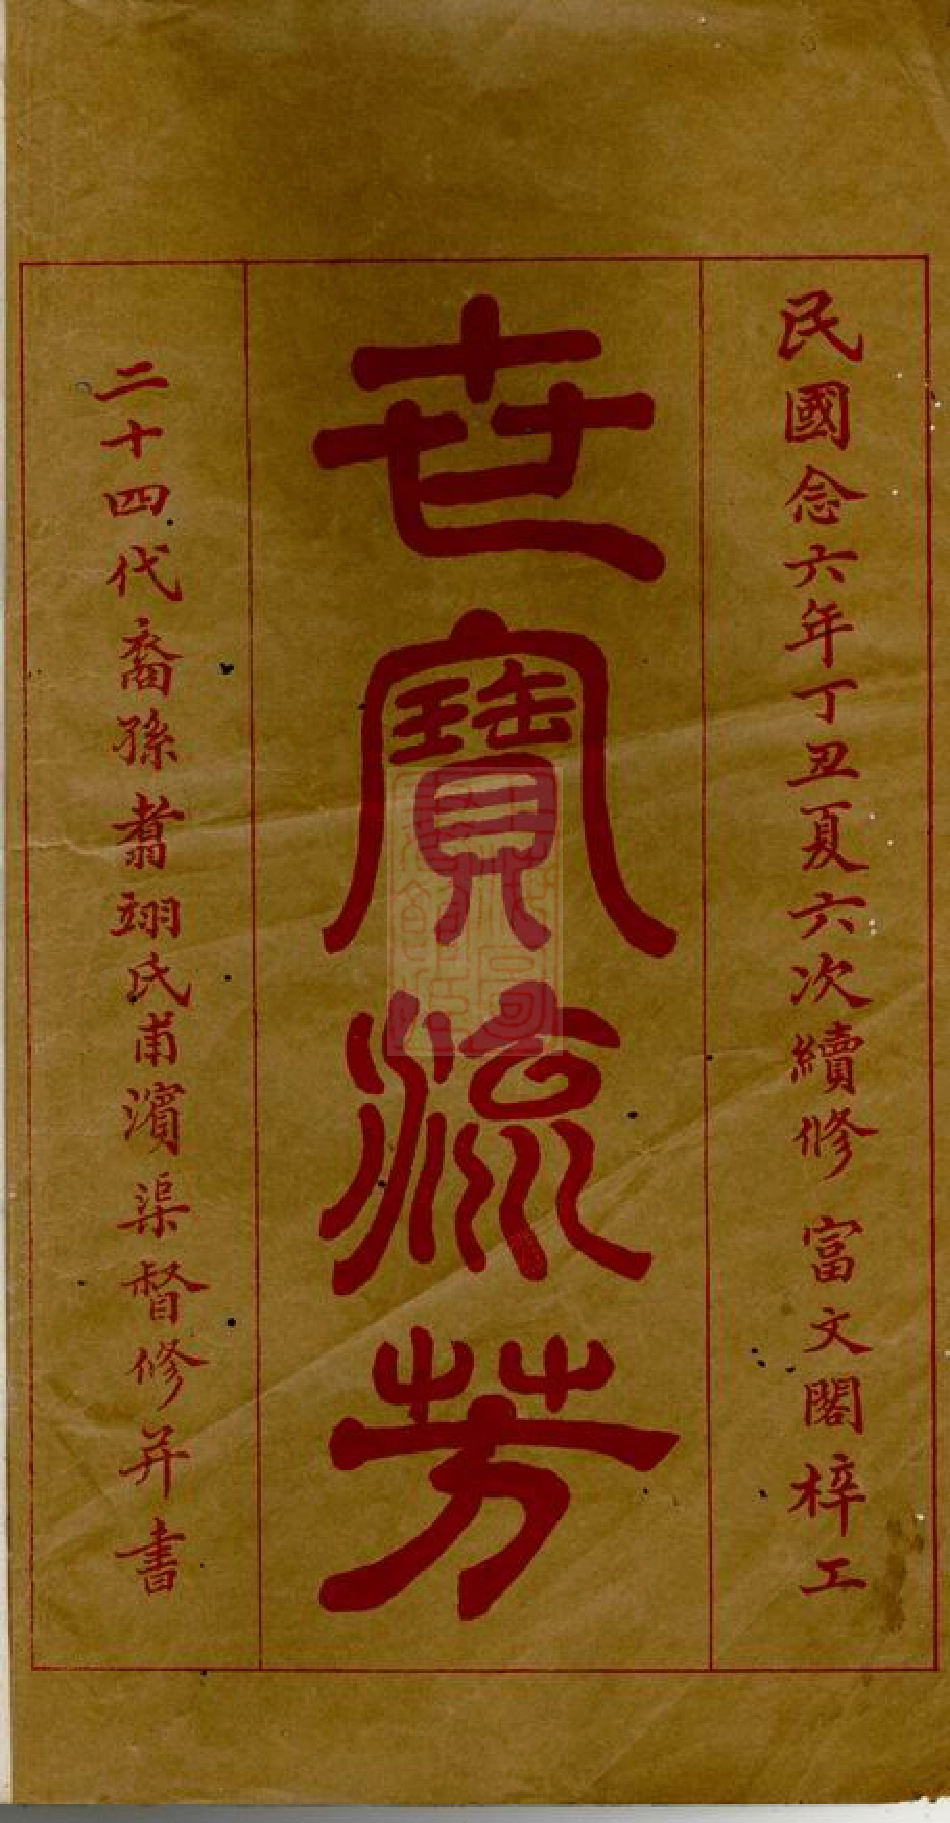 民國念六年丁丑夏六次續修 富文閣梓工
世寶流芳
二十四代裔孫翥翊氏甫濱渠督修并書